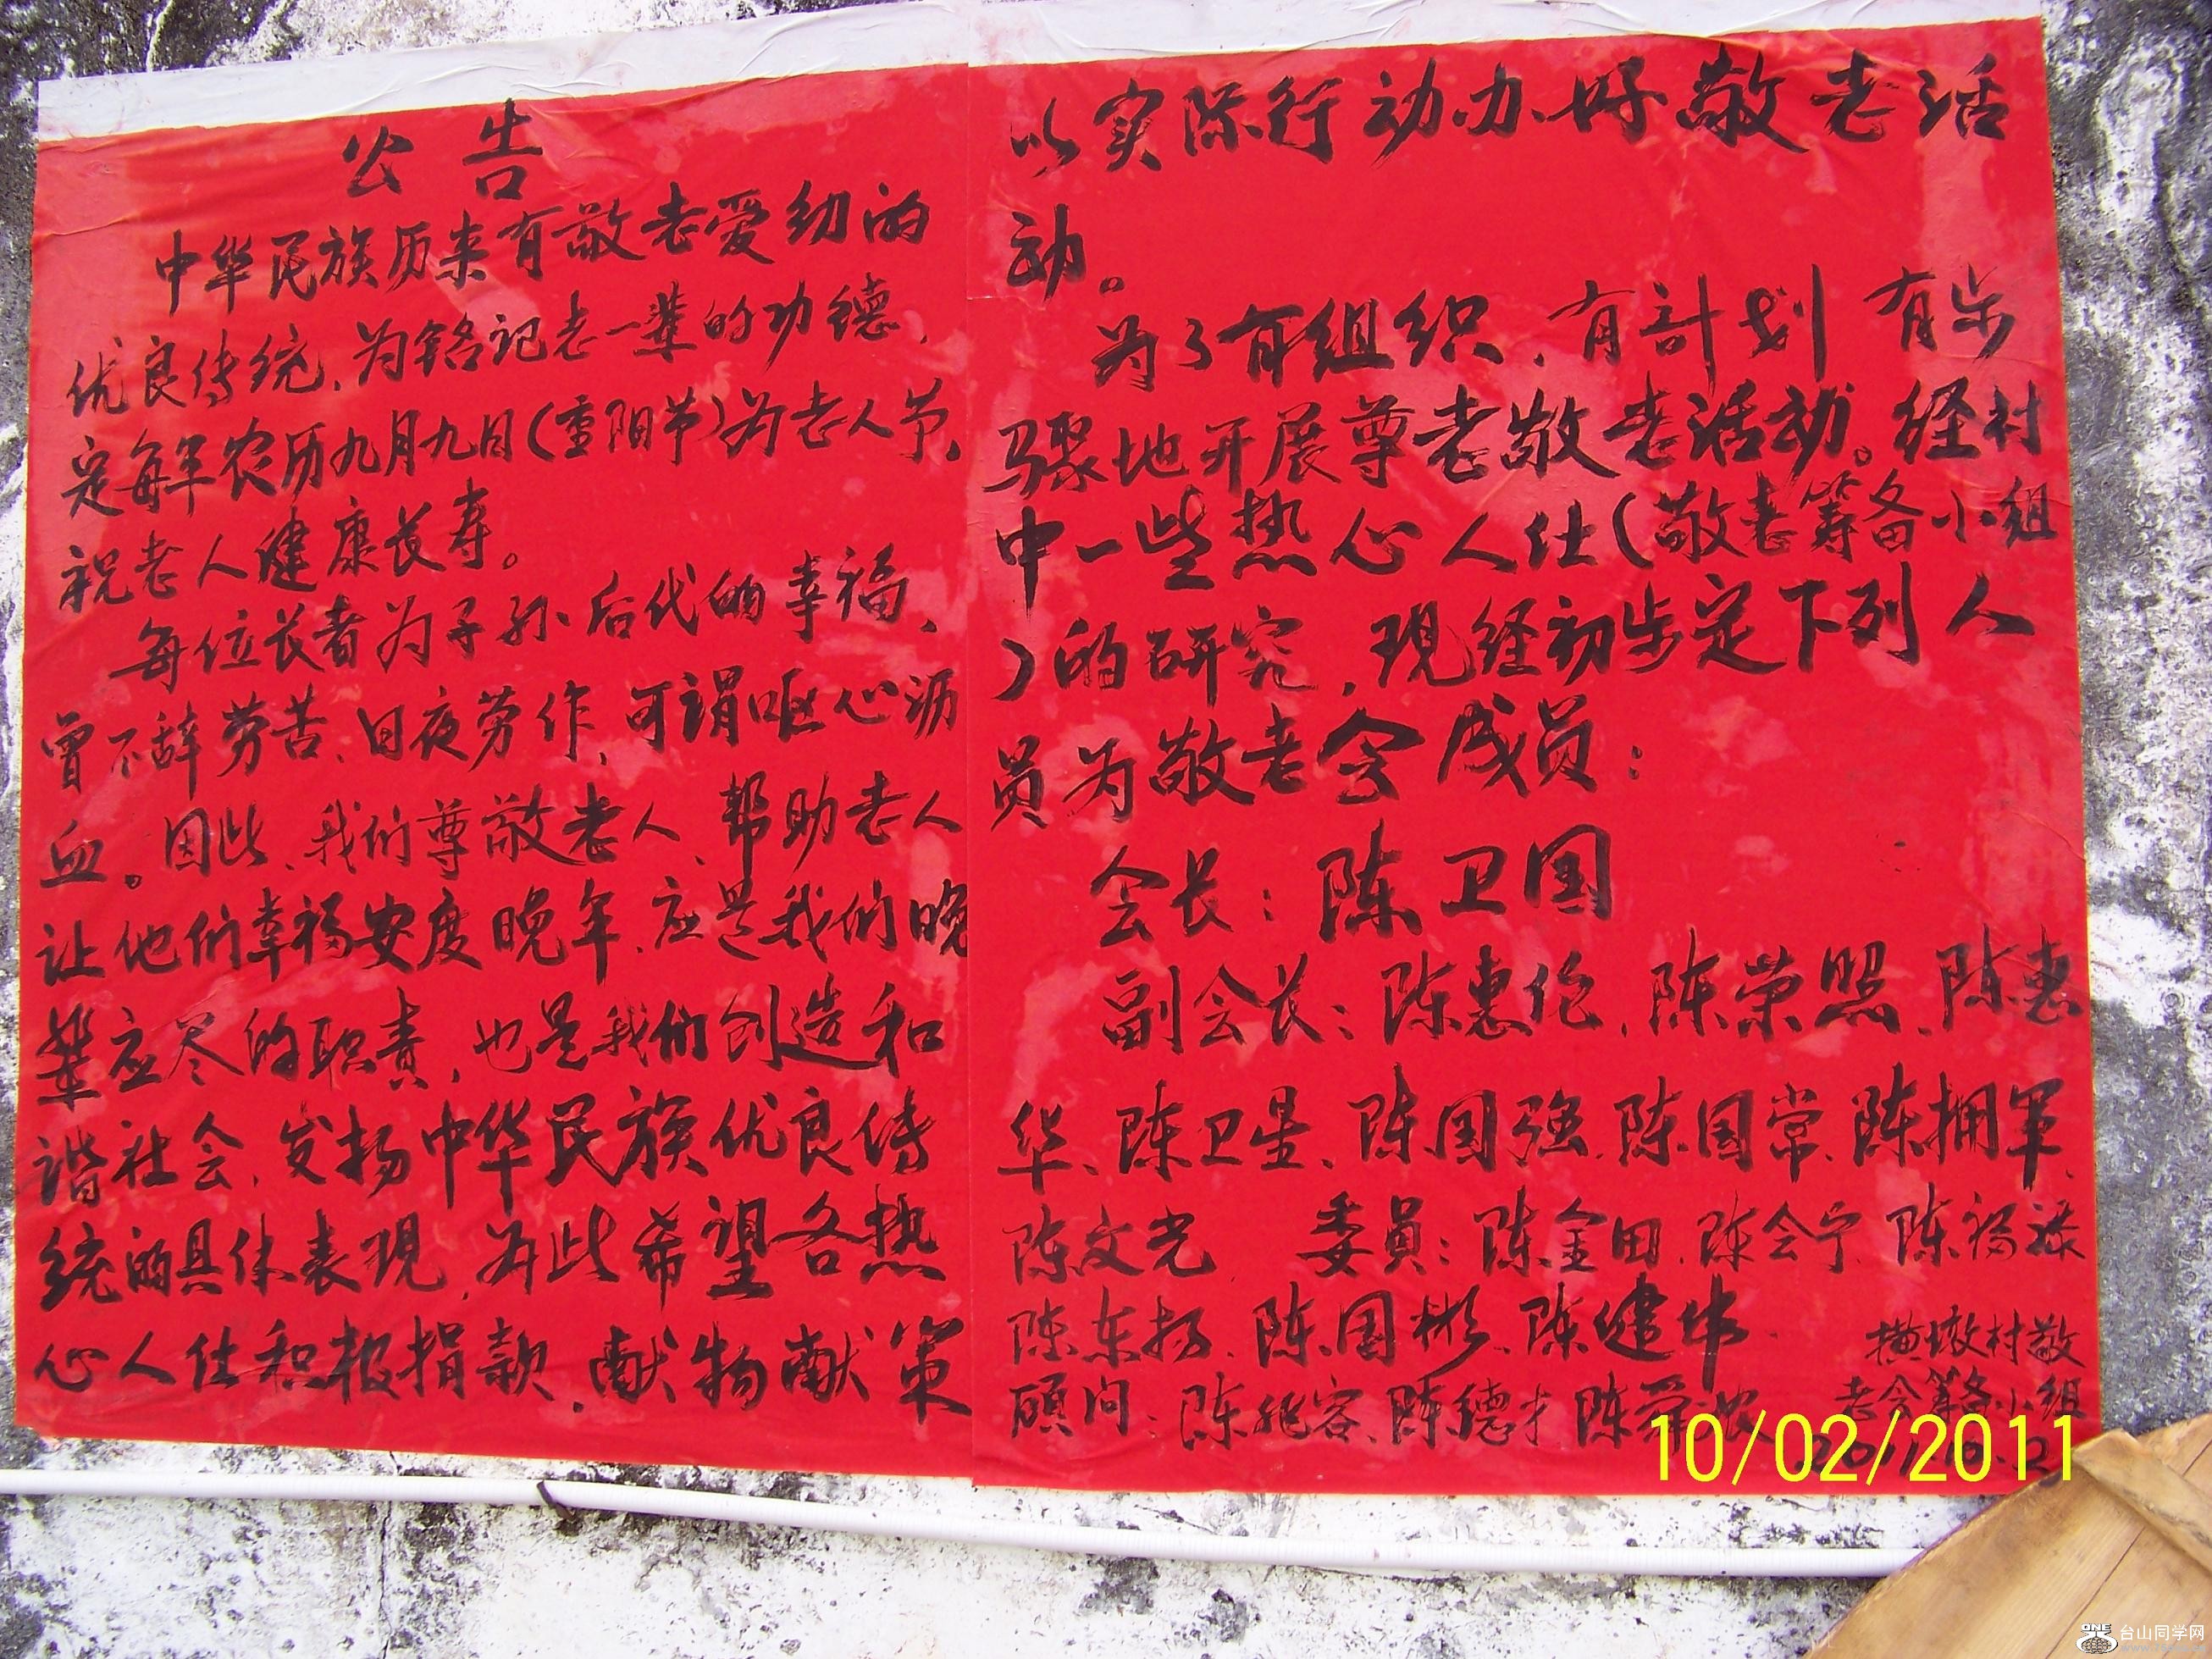 公告
中华民族历来有敬老爱幼的
优良传统,为铭记老一辈的功德,
定每年农历九月九日(重阳节)为老人节,
祝老人健康长寿。
每位长者为子孙后代的幸福、
曾不辞劳苦、日夜劳作,可谓呕心沥
血。因此、我们尊敬老人、帮助老人
让他们幸福安度晚年、应是我们晚
辈应尽的职责,也是我们创造和
谐社会、发扬中华民族优良传
统的具体表现,为此希望各热
心人仕积极捐款、献物献策
以实际行动办好敬老活
动。
为了有组织,有計划 有步
骤地开展尊老敬老活动。经村
中一些热心人仕(敬老筹备小组
)的研究,现经初步定下列人
员为敬老会成员:
会长:陈卫国
副会长:陈惠伦、陈荣照、陈惠
华、陈卫星、陈国强、陈国常、陈拥军、
陈文光 委員:陈金田、陈会宁、陈福禄
陈东扬、陈国彬、陈健伟
顾问:陈兆容、陈德才 陈舜
横墩村敬
老会筹备小组
10/02/2011
台山同学网